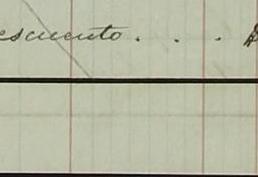 escuento . . .